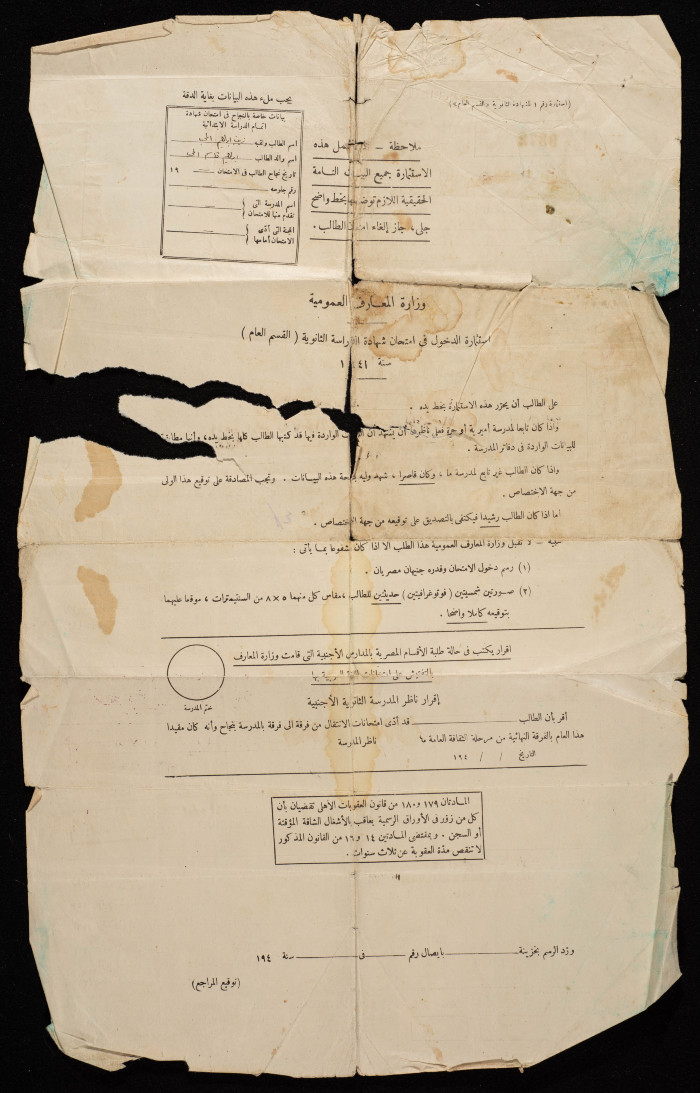 (استمارة رقم ١ لشهادة الثانوية «القسم العام»)
يجب ملء هذه البيانات بغاية الدقة
بيانات خاصة بالنجاح فى امتحان شهادة
اتمام الدراسة الابتدائية
اسم الطالب ولقبه
اسم والد الطالب
تاريخ نجاح الطالب فى الامتحان ١٩
رقم جلوسه
اسم المدرسة التى
تقدم منها للامتحان
اللجنة التى أدى
الامتحان أمامها
ملاحظة — هذه
الاستمارة جميع التامة
الحقيقية اللازم بخط واضح
جلى، جاز إلغاء الطالب .
وزارة المعارف العمومية
استمارة الدخول فى امتحان شهادة الدراسة الثانوية ( القسم العام )
سنة ١٩٤١
على الطالب أن يحرر هذه الاستمارة بخط يده .
وإذا كان تابعا لمدرسة أميرية أو حرة الواردة فيها قد كتبها الطالب كلها بخط يده، وأنها
للبيانات الواردة فى دفاتر المدرسة .
وإذا كان الطالب غير تابع لمدرسة ما ، وكان قاصرا ، شهد وليه بصحة هذه البيانات . وتجب المصادقة على توقيع هذا الولى
من جهة الاختصاص .
أما اذا كان الطالب رشيدا فيكتفى بالتصديق على توقيعه من جهة الاختصاص .
تنبيه — لا تقبل وزارة المعارف العمومية هذا الطلب الا اذا كان مشفوعا بما يأتى :
(١) رسم دخول الامتحان وقدره جنيهان مصريان .
(٢) صورتين شمسيتين ( فوتوغرافيتين ) حديثتين للطالب ، مقاس كل منهما ٥ × ٨ من السنتيمترات ، موقعا عليهما
بتوقيعه كاملا واضحا .
اقرار يكتب فى حالة طلبة الأقسام المصرية بالمدارس الأجنبية التى قامت وزارة المعارف
إقرار ناظر المدرسة الثانوية الأجنبية
ختم المدرسة
أقر بأن الطالب قد أدى امتحانات الانتقال من فرقة الى فرقة بالمدرسة بنجاح وأنه كان مقيدا
هذا العام بالفرقة النهائية من مرحلة الثقافة العامة
ناظر المدرسة
التاريخ / / ١٩٤
المادتان ١٧٩ و ١٨٠ من قانون العقوبات الأهلى تقضيان بأن
كل من زور فى الأوراق الرسمية يعاقب بالأشغال الشاقة المؤقتة
أو السجن . وبمقتضى المادتين ١٤ و ١٦ من القانون المذكور
لا تنقص مدة العقوبة عن ثلاث سنوات .
ورد الرسم بخزينة بايصال رقم فى سنة ١٩٤
(توقيع المراجع)